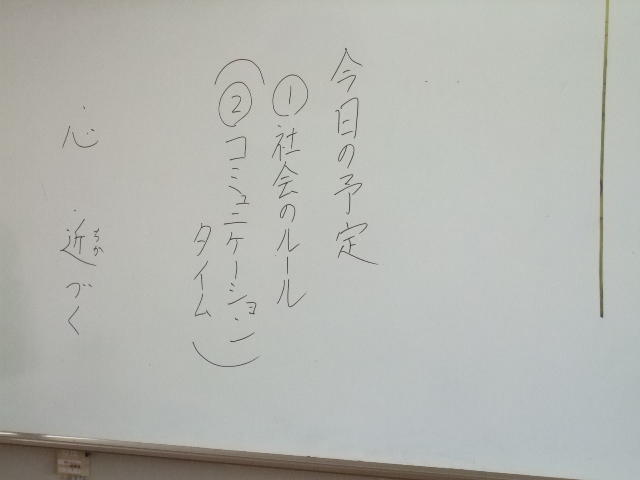 今日の予定
①社会のルール
(②コミュニケーション
タイム)
心 近づく
ちか